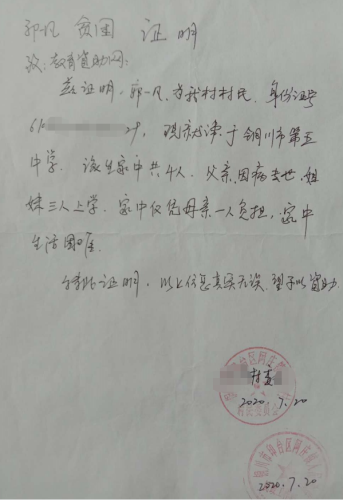 郭一凡 贫困 证明
致：教育资助网：
兹证明，郭一凡，为我村村民，身份证号
610 29，现就读于铜川市第五
中学。该生家中共4人，父亲因病去世，姐
妹三人上学。家中仅凭母亲一人负担，家中
生活困难。
特此证明，以上信息真实无误，望予以资助
村委
2020.7.20
2020.7.20